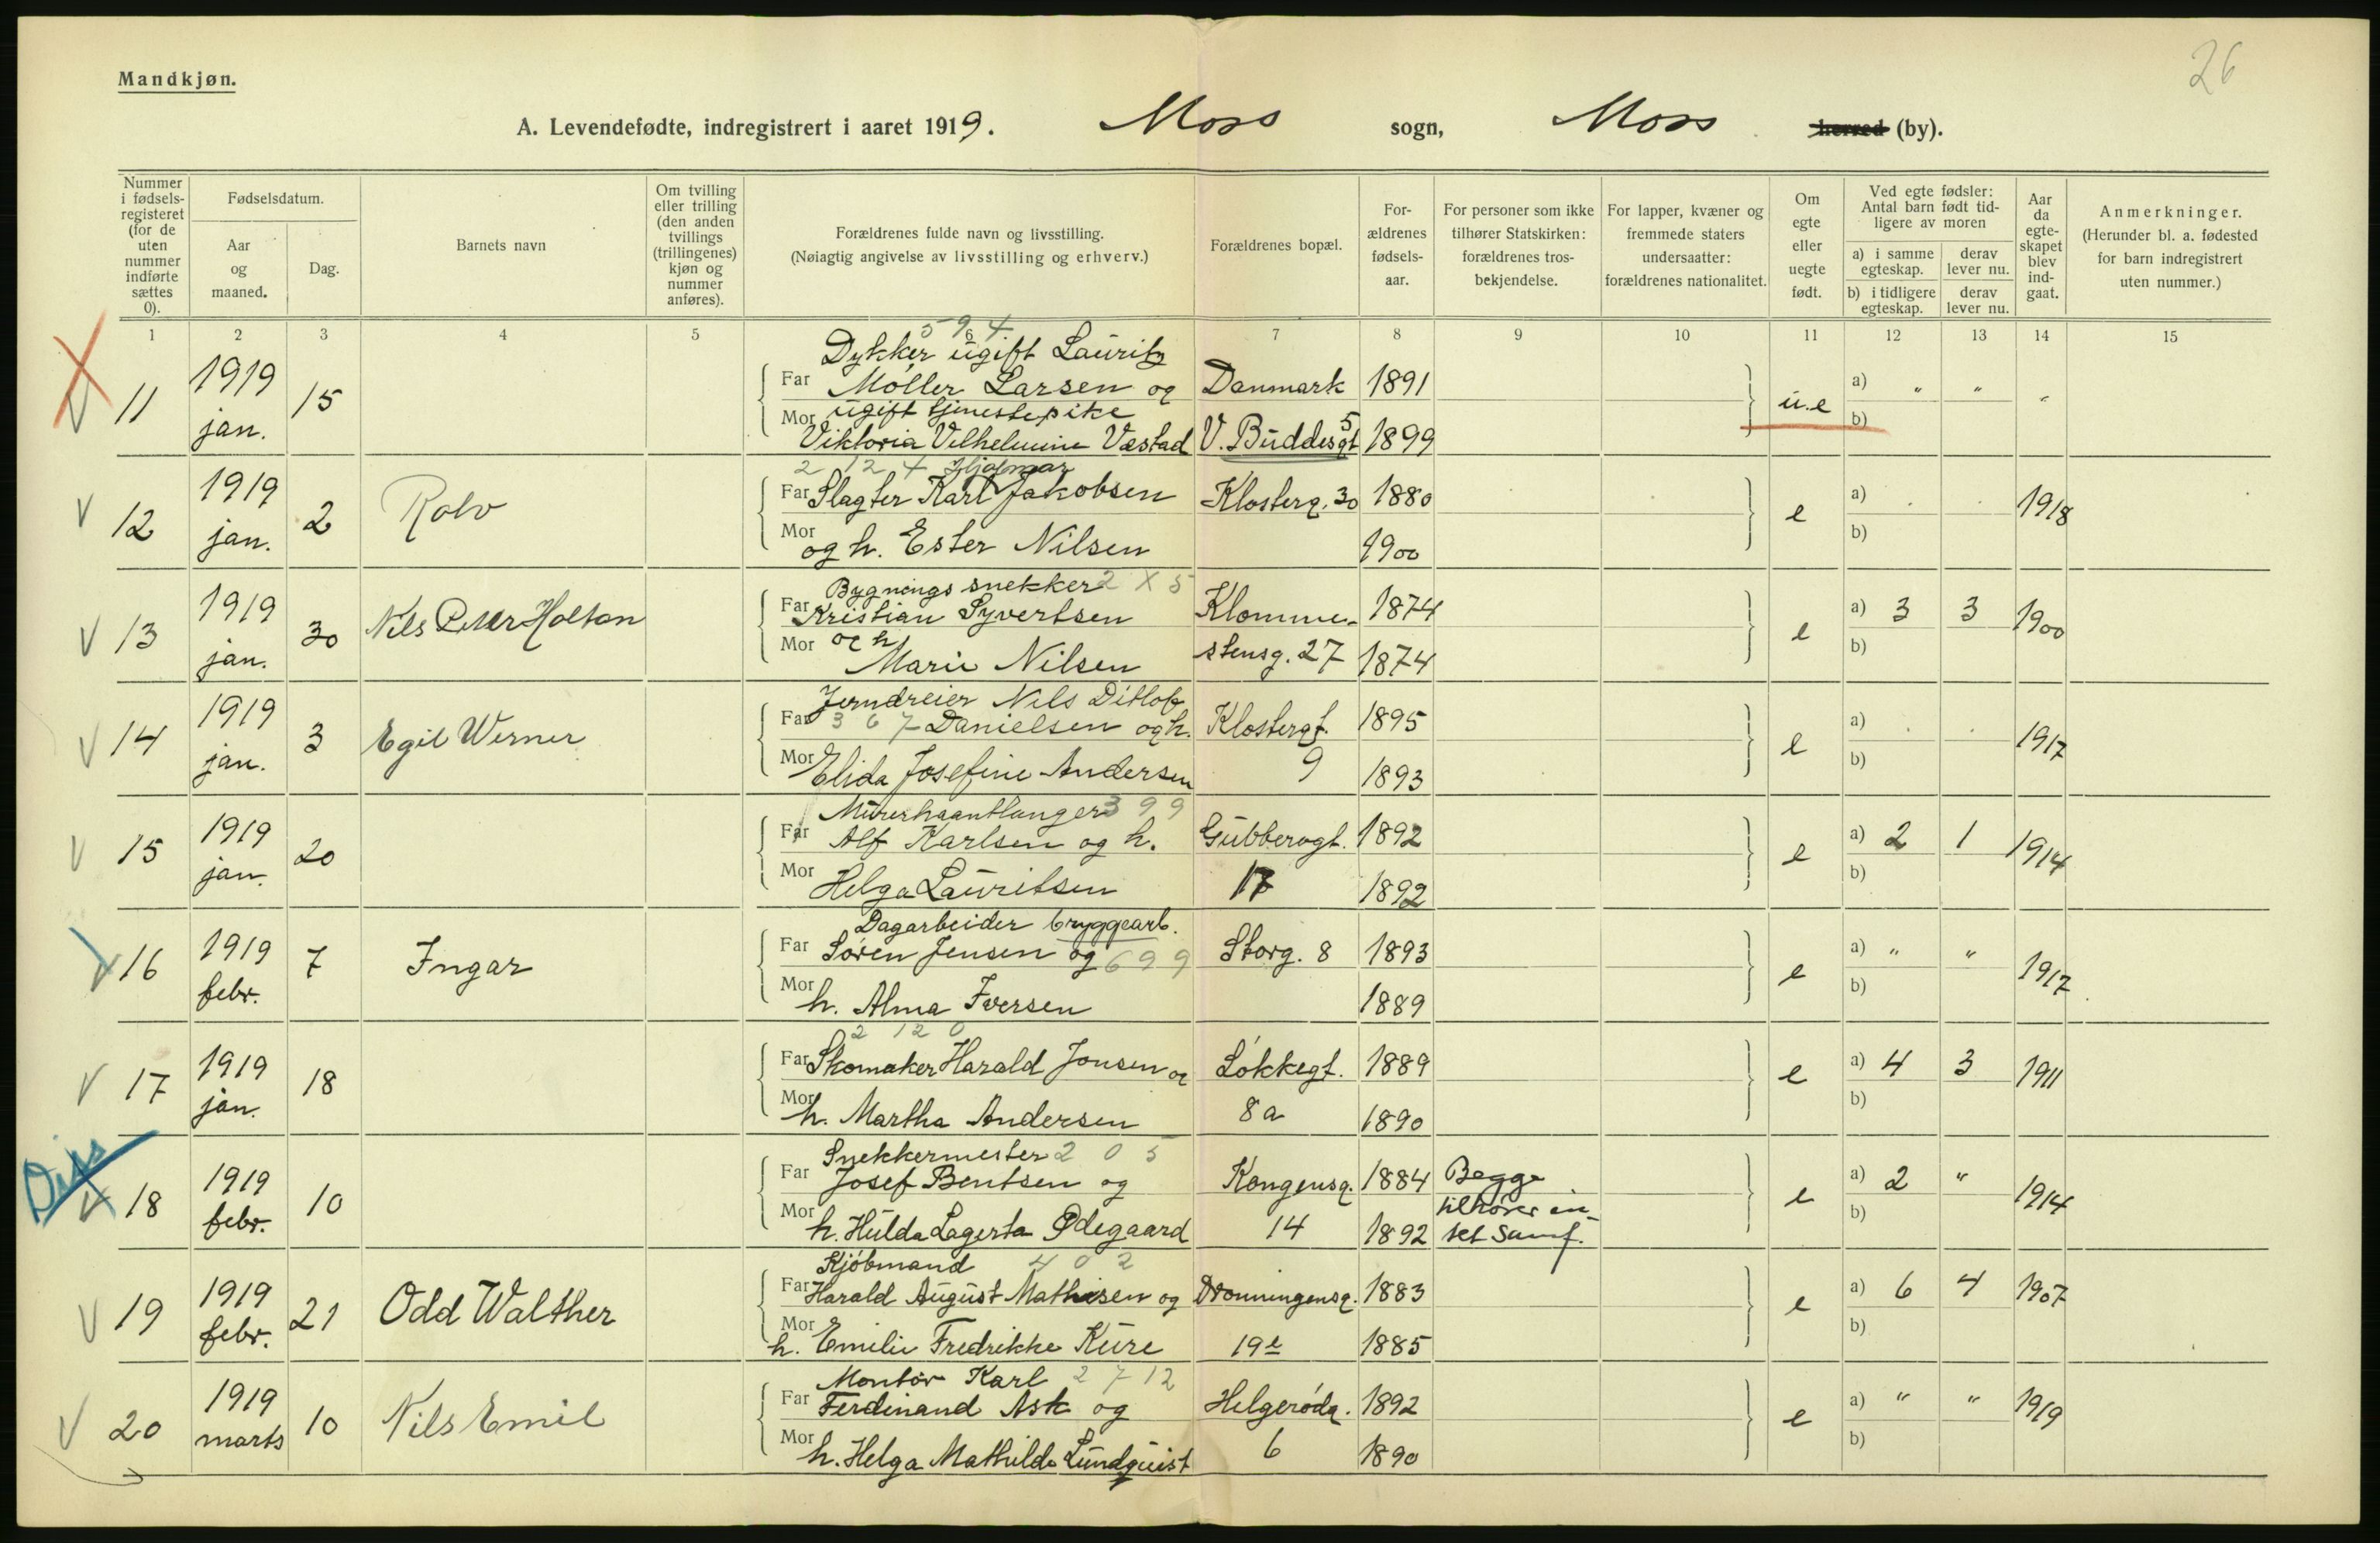 26
Mandkjøn.
A. Levendefødte, indregistrert i aaret 1919. Moss sogn, Moss herred (by).
Nummer i fødsels-registeret (for de uten nummer indførte sættes 0).
Fødselsdatum.
Aar og maaned.
Dag.
Barnets navn
Om tvilling eller trilling (den anden tvillings (trillingenes) kjøn og nummer anføres).
Forældrenes fulde navn og livsstilling.
(Nøiagtig angivelse av livsstilling og erhverv.)
Forældrenes bopæl.
For-ældrenes fødsels-aar.
For personer som ikke tilhører Statskirken: forældrenes tros-bekjendelse.
For lapper, kvæner og fremmede staters undersaatter: forældrenes nationalitet.
Om egte eller uegte født.
Ved egte fødsler: Antal barn født tid-ligere av moren
a) i samme egteskap. derav lever nu.
b) i tidligere egteskap. derav lever nu.
Aar da egte-skapet blev ind-gaat.
Anmerkninger.
(Herunder bl. a. fødested for barn indregistrert uten nummer.)
1 2 3 4 5 6 7 8 9 10 11 12 13 14 15
594
Dykker, ugift Lauritz
11 1919 jan. 15 Far Møller Larsen og Danmark 1891 u.e a) " " "
Mor ugift tjenestepike
Viktoria Vilhelmine Væstad V. Buddesgt 5 1899 b)
2 12 4 Hjalmar
V 12 1919 jan. 2 Rolv Far Slagter Karl Jakobsen Klosterg. 30 1880 e a) . . 1918
Mor og h. Ester Nilsen 1900 b)
Bygnings snekker 2 X 5
V 13 1919 jan. 30 Nils Peter Holton Far Kristian Syvertsen Klomme- 1874 e a) 3 3 1900
Mor og h.
Marie Nilsen stensg. 27 1874 b)
Jerndreier Nils Ditlof
V 14 1919 jan. 3 Egil Werner Far 3 6 7 Danielsen og h. Klostergt. 1895 e a) . . 1917
Mor Elida Josefine Andersen 9 1893 b)
Murerhaantlanger 3 9 9
V 15 1919 jan. 20 Far Alf Karlsen og h. Gubberogt. 1892 e a) 2 1 1914
Mor Helga Lauritsen 17 1892 b)
Dagarbeider bryggearb.
V 16 1919 febr. 7 Ingar Far Søren Jensen og 6 9 9 Storg. 8 1893 e a) " " 1917
Mor h. Alma Iversen 1889 b)
2 12 0
V 17 1919 jan. 18 Far Skomaker Harald Jonsen og Løkkegt. 1889 e a) 4 3 1911
Mor h. Martha Andersen 8a 1890 b)
Diss
Snekkermester 2 0 5
V 18 1919 febr. 10 Far Josef Bentsen og Kongensg. 1884 Begge e a) 2 " 1914
tilhører in-
Mor h. Hulda Lagerta Ødegaard 14 1892 tet Samf. b)
Kjøbmand 4 0 2
V 19 1919 febr. 21 Odd Walther Far Harald August Mathisen og Dronningensg. 1883 e a) 6 4 1907
Mor h. Emilie Fredrikke Kure 19e 1885 b)
Montør Karl 2 7 12
V 20 1919 marts 10 Nils Emil Far Ferdinand Ask og Helgerødg. 1892 e a) " " 1919
Mor h. Helga Mathilde Lundquist 6 1890 b)